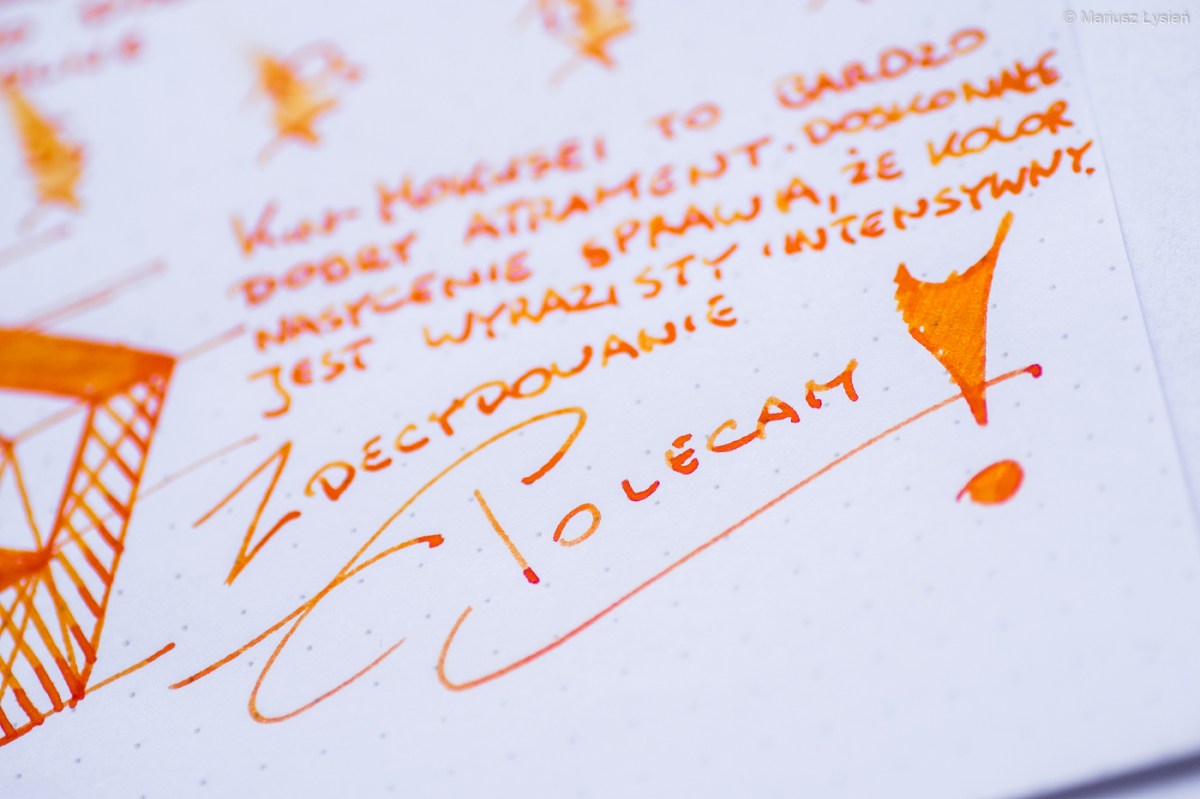 © Mariusz Łysień
TO BARDZO
DOBRY ATRAMENT. DOSKONAŁE
NASYCENIE SPRAWIA, ŻE KOLOR
JEST WYRAZISTY INTENSYWNY.
ZDECYDOWANIE
POLECAM!